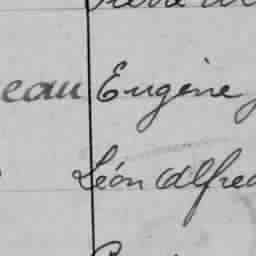 eau Eugène
Léon Alfred